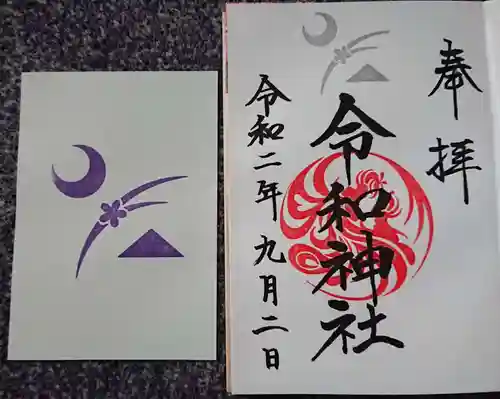 奉拝
令和神社
令和二年九月二日